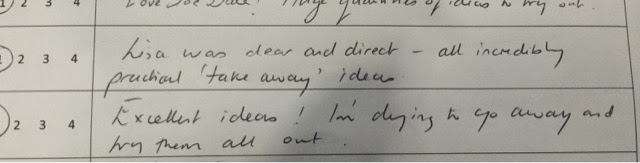 2 3 4 Love Joe Dale! Huge quantities of ideas to try out.
2 3 4 Lisa was clear and direct – all incredibly
practical 'take away' ideas
2 3 4 Excellent ideas! I'm dying to go away and
try them all out.